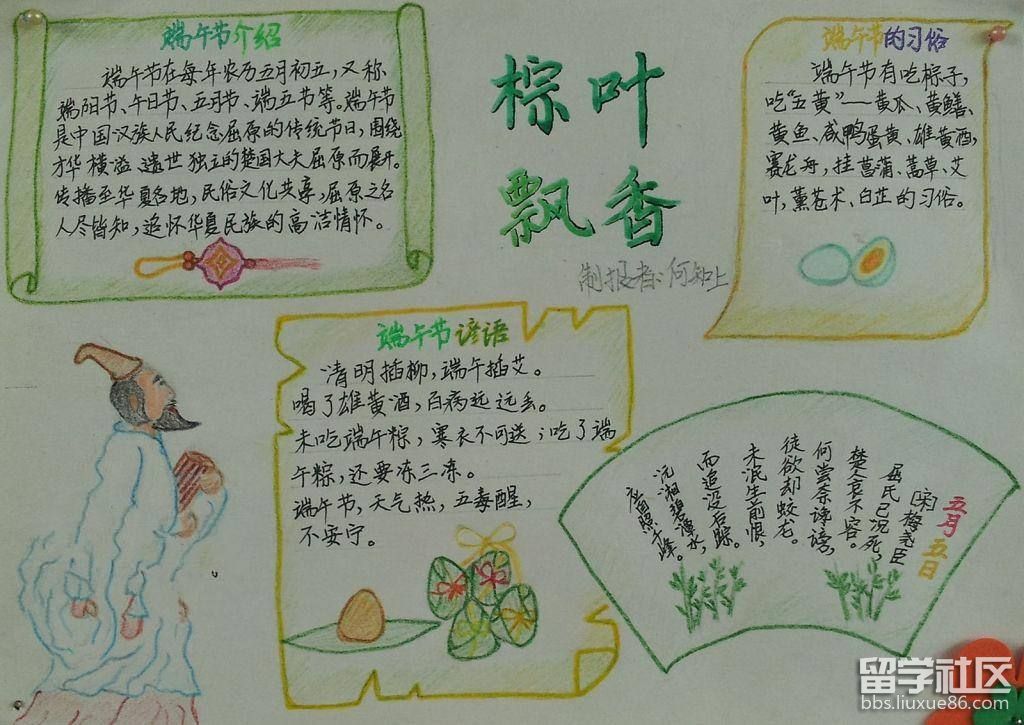 端午节介绍
端午节在每年农历五月初五，又称
端阳节、午日节、五月节、端五节等。端午节
是中国汉族人民纪念屈原的传统节日，围绕
才华横溢、遗世独立的楚国大夫屈原而展开。
传播至华夏各地，民俗文化共享，屈原之名
人尽皆知，追怀华夏民族的高洁情怀。
棕叶
飘香
制报者：何知上
端午节的习俗
端午节有吃棕子，
吃“五黄”——黄瓜、黄鳝、
黄鱼、咸鸭蛋黄、雄黄酒，
赛龙舟，挂菖蒲、蒿草、艾
叶，薰苍术、白芷的习俗。
端午节谚语
清明插柳，端午插艾。
喝了雄黄酒，百病远远丢。
未吃端午粽，寒衣不可送；吃了端
午粽，还要冻三冻。
端午节，天气热，五毒醒，
不安宁。
五月五日
[宋]梅尧臣
屈氏已沉死，
楚人哀不容。
何尝奈谗谤，
徒欲却蛟龙。
未泯生前恨，
而追没后踪。
沅湘碧潭水，
应照千峰。
留学社区
bbs.liuxue86.com